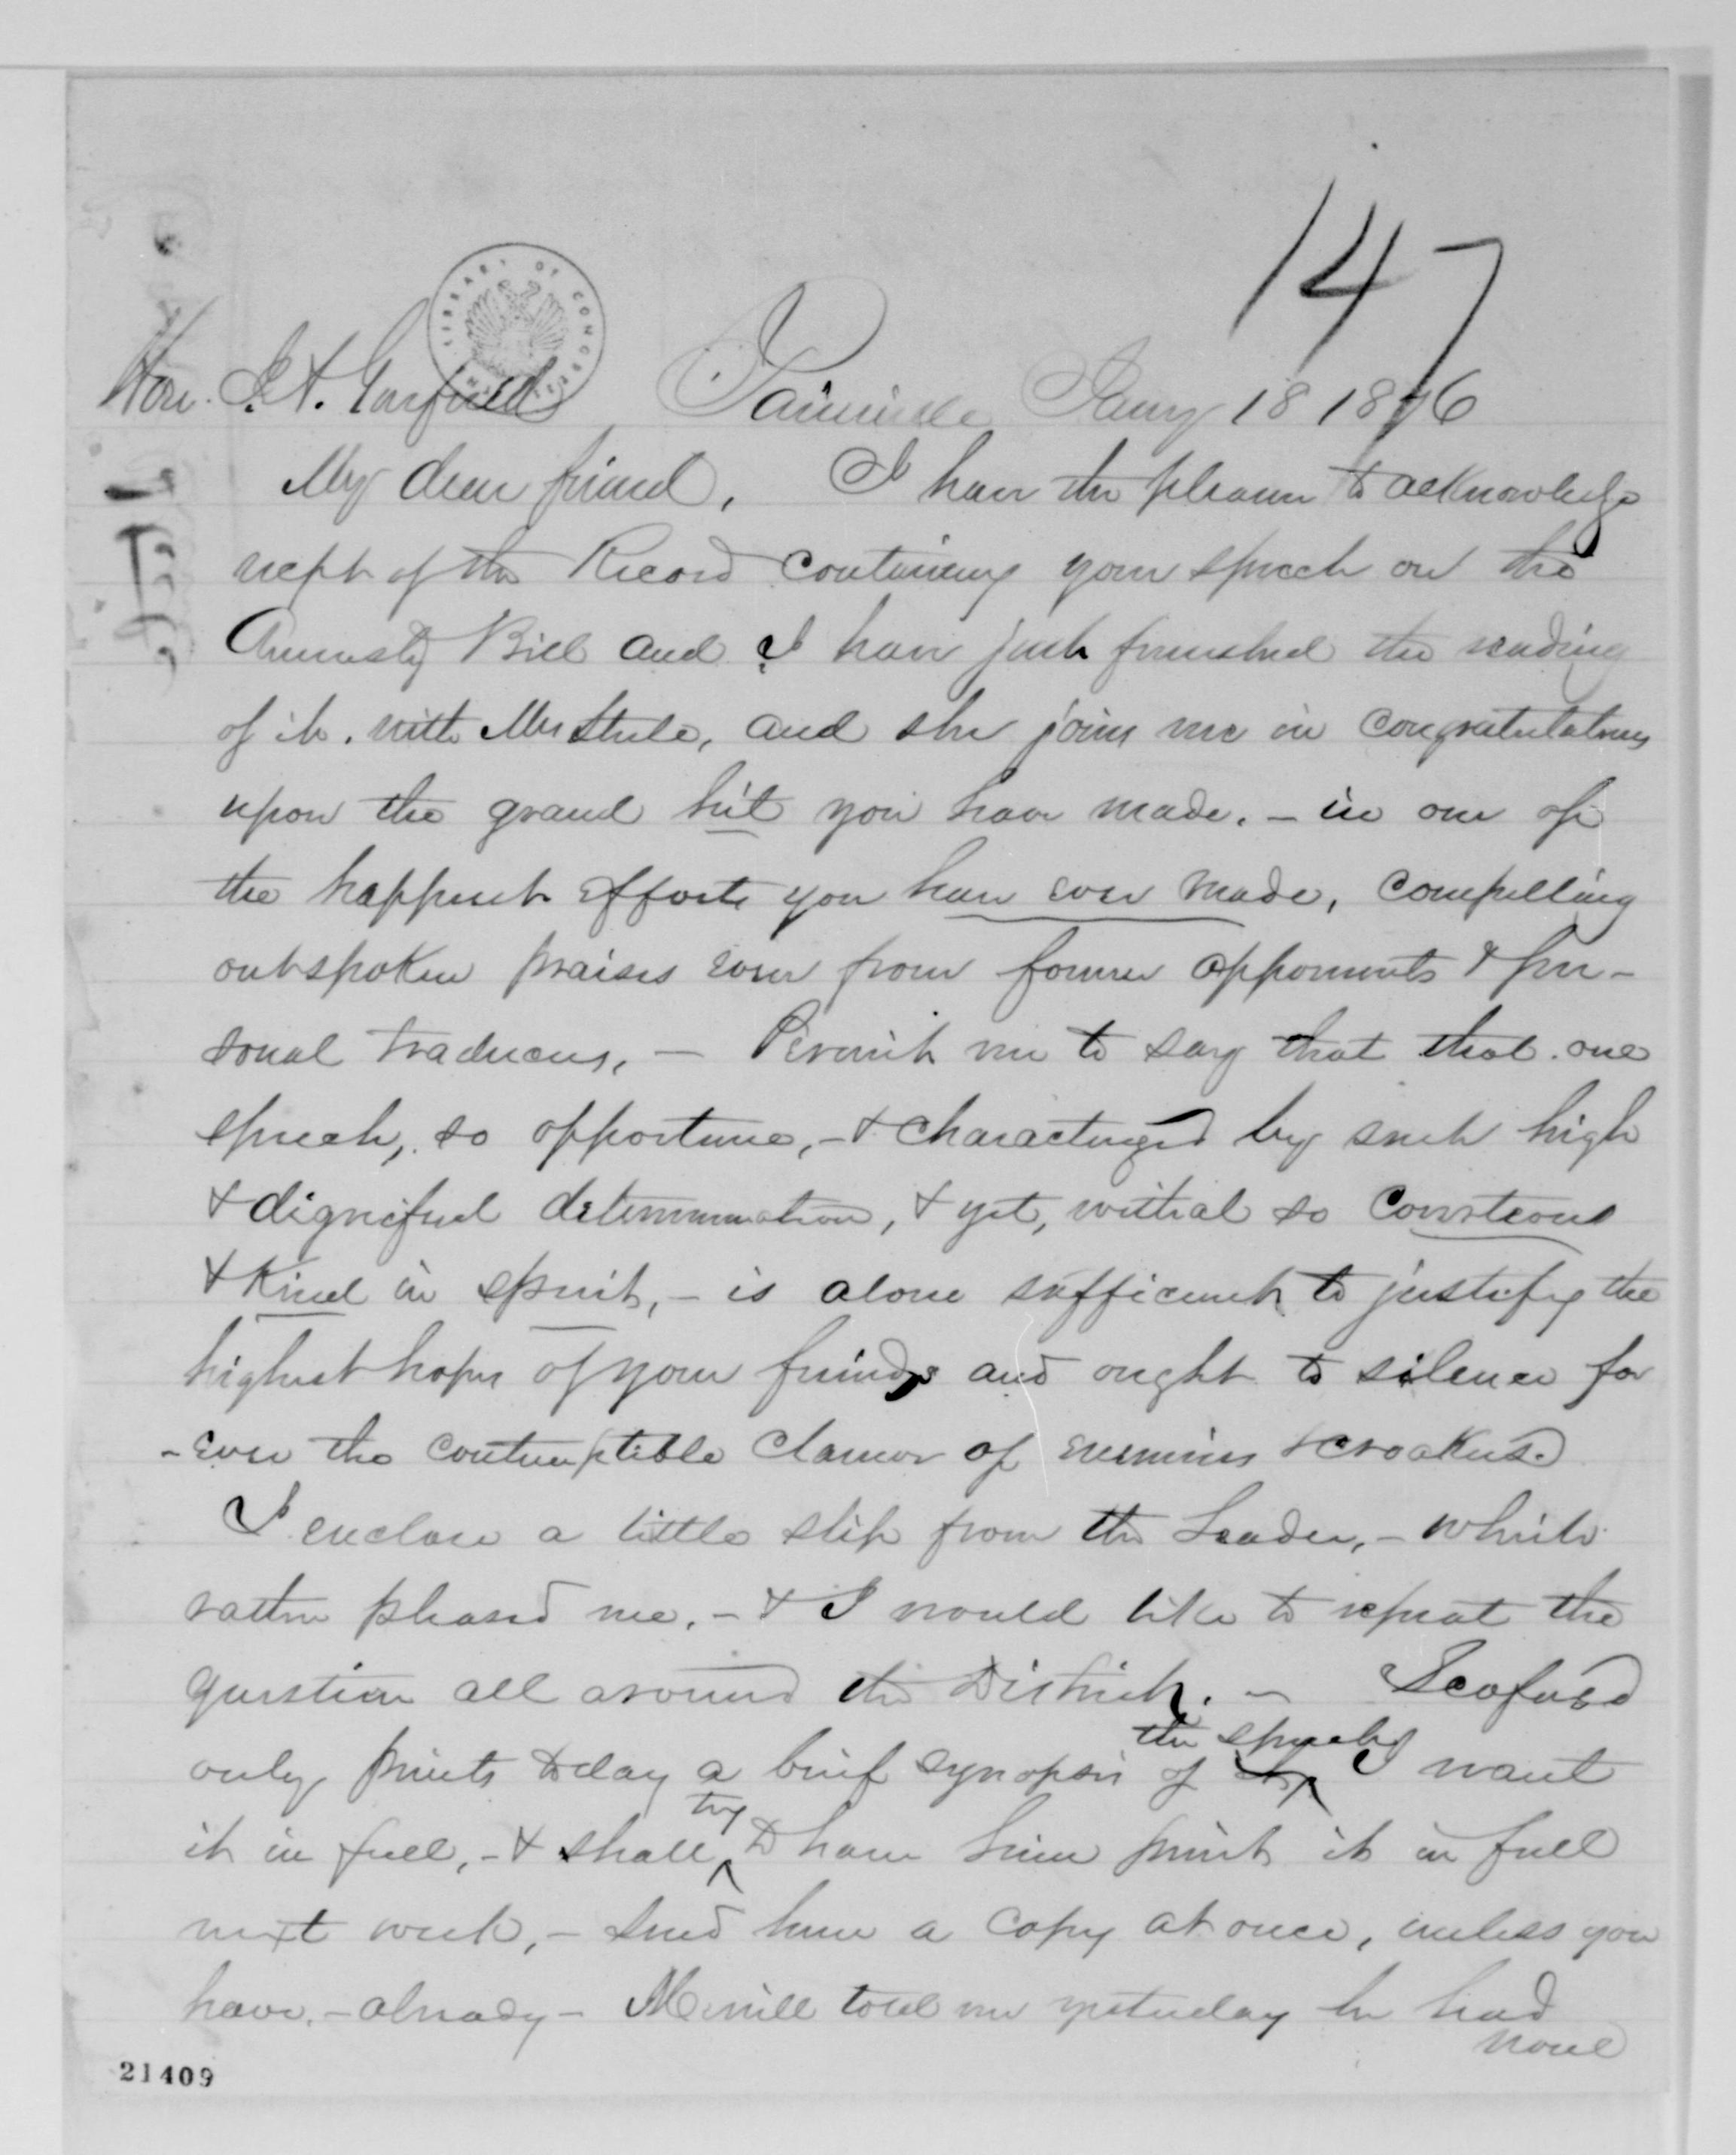 147
LIBRARY OF CONGRESS
Hon. J. A. Garfield, Painesville Jany 18 1876
My dear friend, I have the pleasure to acknowledge
recpt of the Record containing your speech on the
Amnesty Bill and I have just finished the reading
of it. with Mrs Steele, and she joins me in congratulations
upon the grand hit you have made. - in one of
the happiest efforts you have ever made, compelling
outspoken praises even from former opponents & per-
sonal traducers, - Permit me to say that that one
speech, so opportune, - & characterized by such high
& dignified determination, & yet, withal so courteous
& kind in spirit, - is alone sufficient to justify the
highest hopes of your friends and ought to silence for
-ever the contemptible clamor of enemies & croakers.
I enclose a little slip from the Leader, - which
rather pleased me. - & I would like to repeat the
question all around the District. - Scofield
only prints today a brief synopsis of the speech I want
it in full, - & shall try to have him print it in full
next week, - send him a copy at once, unless you
have, - already - Merrill told me yesterday he had
none
21409